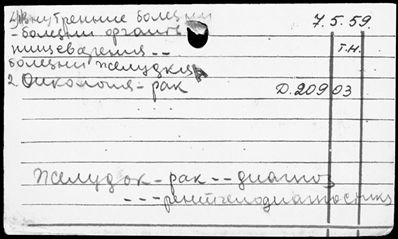 1) Внутренние болезни 7.5.59.
- болезни органов т.н.
пищеварения --
болезни желудка
2. Онкология - рак Д.20903
Желудок - рак -- диагноз
--- рентгенодиагностика